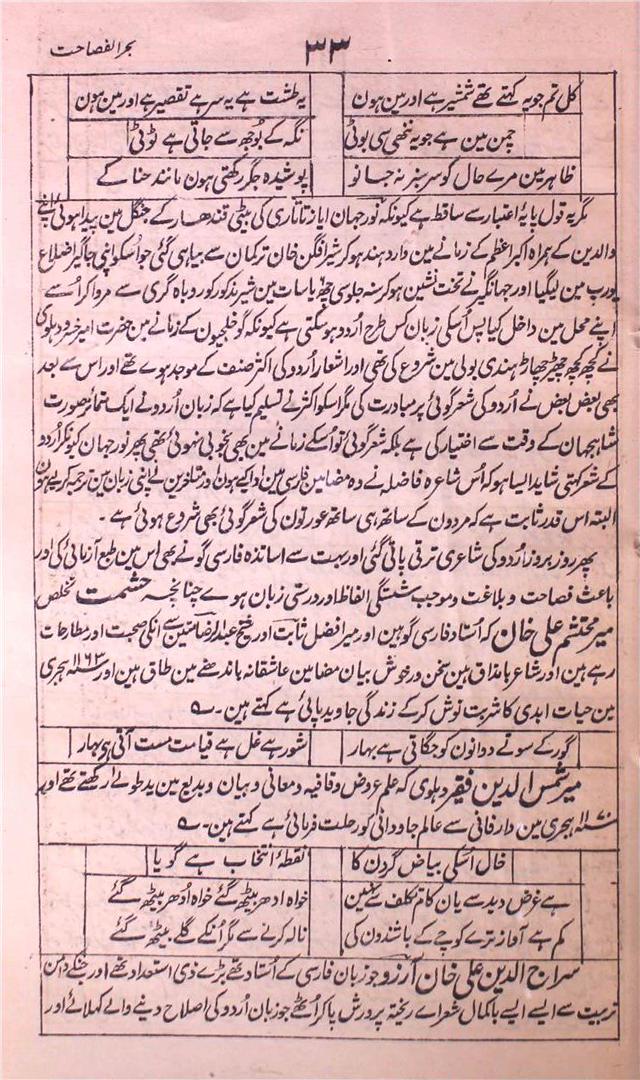 بحر الفصاحت
۳۳
کل تم جو یہ کہتے تھے شمشیر ہے اور مین ہون
یہ طشت ہے یہ سر ہے تقصیر ہے اور مین ہون
چمن مین ہے جو یہ ننھی سی بوٹی
نگہ کے بوجھ سے جاتی ہے ٹوٹی
ظاہر مین مرے حال کو سرسبز نہ جانو
پوشیدہ جگر رکھتی ہون مانند حنا کے
مگر یہ قول پایۂ اعتبار سے ساقط ہے کیونکہ نور جہان ایاز تاتاری کی بیٹی قندھار کے جنگل مین پیدا ہوئی اپنے
والدین کے ہمراہ اکبر اعظم کے زمانے مین وارد ہند ہو کر شیر افگن خان ترکمان سے بیاہی گئی جو اُسکو اپنی جاگیر اضلاع
پورب مین لیگیا اور جہانگیر نے تخت نشین ہو کر سنہ جلوسی چھ یا سات مین شیر مذکور کو روباہ گری سے مروا کر اُسے
اپنے محل مین داخل کیا پس اُسکی زبان کس طرح اُردو ہو سکتی ہے کیونکہ گو خلجیون کے زمانے مین حضرت امیر خسرو دہلوی
نے کچھ کچھ چھیڑ چھاڑ ہندی بولی مین شروع کی تھی اور اشعار اُردو کی اکثر صنف کے موجد ہوے تھے اور اس سے بعد
بھی بعض بعض نے اُردو کی شعر گوئی پر مبادرت کی مگر اسکو اکثر نے تسلیم کیا ہے کہ زبان اُردو نے ایک متمائز صورت
شاہجہان کے وقت سے اختیار کی ہے بلکہ شعر گوئی تو اُسکے زمانے مین بھی بخوبی نہوئی تھی پھر نور جہان کیونکر اُردو
کے شعر کہتی شاید ایسا ہو کہ اُس شاعرہ فاضلہ نے وہ مضامین فارسی مین ادا کیے ہون اور متاخرین نے اپنی زبان مین ترجمہ کر لیے ہون
البتہ اس قدر ثابت ہے کہ مردون کے ساتھ ہی ساتھ عورتون کی شعر گوئی بھی شروع ہوئی ہے ۔
پھر روز بروز اُردو کی شاعری ترقی پاتی گئی اور بہت سے اساتذہ فارسی گو نے بھی اس مین طبع آزمائی کی اور
باعث فصاحت و بلاغت و موجب شستگی الفاظ اور درستی زبان ہوے چنانچہ حشمت تخلص
میر محتشم علی خان کہ اُستاد فارسی گو ہین اور میر افضل ثابت اور شیخ عبد الرضا متین سے انکی صحبت اور مطارحات
رہے ہین اور شاعر با مذاق ہین سخن ور خوش بیان مضامین عاشقانہ باندھنے مین طاق ہین اور سنہ ۱۱۶۳ ہجری
مین حیات ابدی کا شربت نوش کر کے زندگی جاوید پائی ہے کہتے ہین ۔
گور کے سوتے دوانون کو جگاتی ہے بہار
شور ہے غل ہے قیامت مست آتی ہے بہار
میر شمس الدین فقیر دہلوی کہ علم عروض و قافیہ و معانی و بیان و بدیع مین ید طولے رکھتے تھے اور
سنہ ۱۱۷۰ ہجری مین دار فانی سے عالم جاودانی کو رحلت فرمائی ہے کہتے ہین ۔
خال اُسکی بیاض گردن کا
نقطۂ انتخاب ہے گویا
ہے غرض دید سے یان کام تکلف سے نہین
خواہ ادھر بیٹھ گئے خواہ اُدھر بیٹھ گئے
کم ہے آواز ترے کوچے کے باشندون کی
نالہ کرنے سے مگر اُنکے گلے بیٹھ گئے
سراج الدین علی خان آرزو جو زبان فارسی کے اُستاد تھے بڑے ذی استعداد تھے اور جنکے دامن
تربیت سے ایسے ایسے با کمال شعراے ریختہ پرورش پا کر اُٹھے جو زبان اُردو کی اصلاح دینے والے کہلائے اور